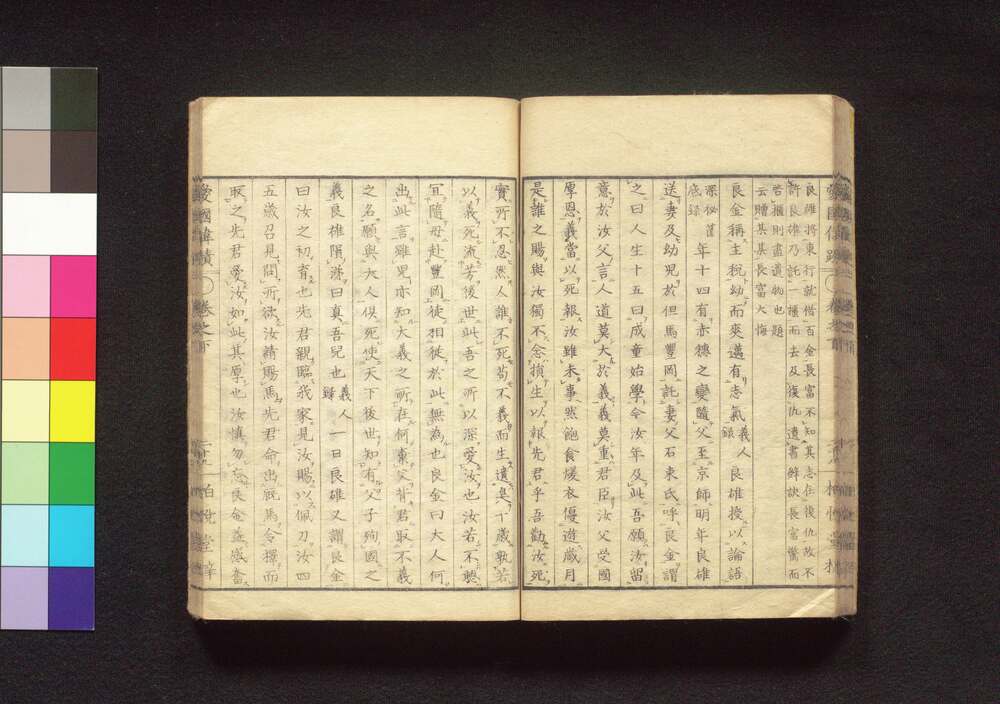 良雄將東行就借百金長富不知其志在復仇故不
許良雄乃託一櫃而去及復仇遺書辭訣長富驚而
啓櫃則盡遺物也題
云贈某某長富大悔
良金稱主稅幼而來邁有志氣義人錄良雄授以論語
年十四有赤穗之變隨父至京師明年良雄
送妻及幼兒於但馬豐岡託妻父石束氏呼良金謂
之曰人生十五曰成童始學令汝年及此吾願汝留
意於汝父言人道莫大於義義莫重君臣汝父受國
厚恩義當以死報汝雖未事然飽食煖衣優遊歲月
是誰之賜與汝獨不念損生以報先君乎吾勸汝死
實所不忍然人誰不死苟不義而生遺臭千歲孰若
以義死流芳後世此吾之所以深愛汝也汝若不聽
宜隨母赴豐岡徒相從於此無為也良金曰大人何
出此言雖兒亦知大義之所在何棄父背君取不義
之名願與大人俱死使天下後世知有父子殉國之
義良雄隕涕曰真吾兒也義人錄一日良雄又謂良金
曰汝之初育也先君親臨我家見汝賜以佩刀汝四
五歲召見問所欲汝請賜馬先君命出廐馬令擇而
取之先君愛汝如此其厚也汝慎勿忘良金益感奮
愛國偉績 卷之下